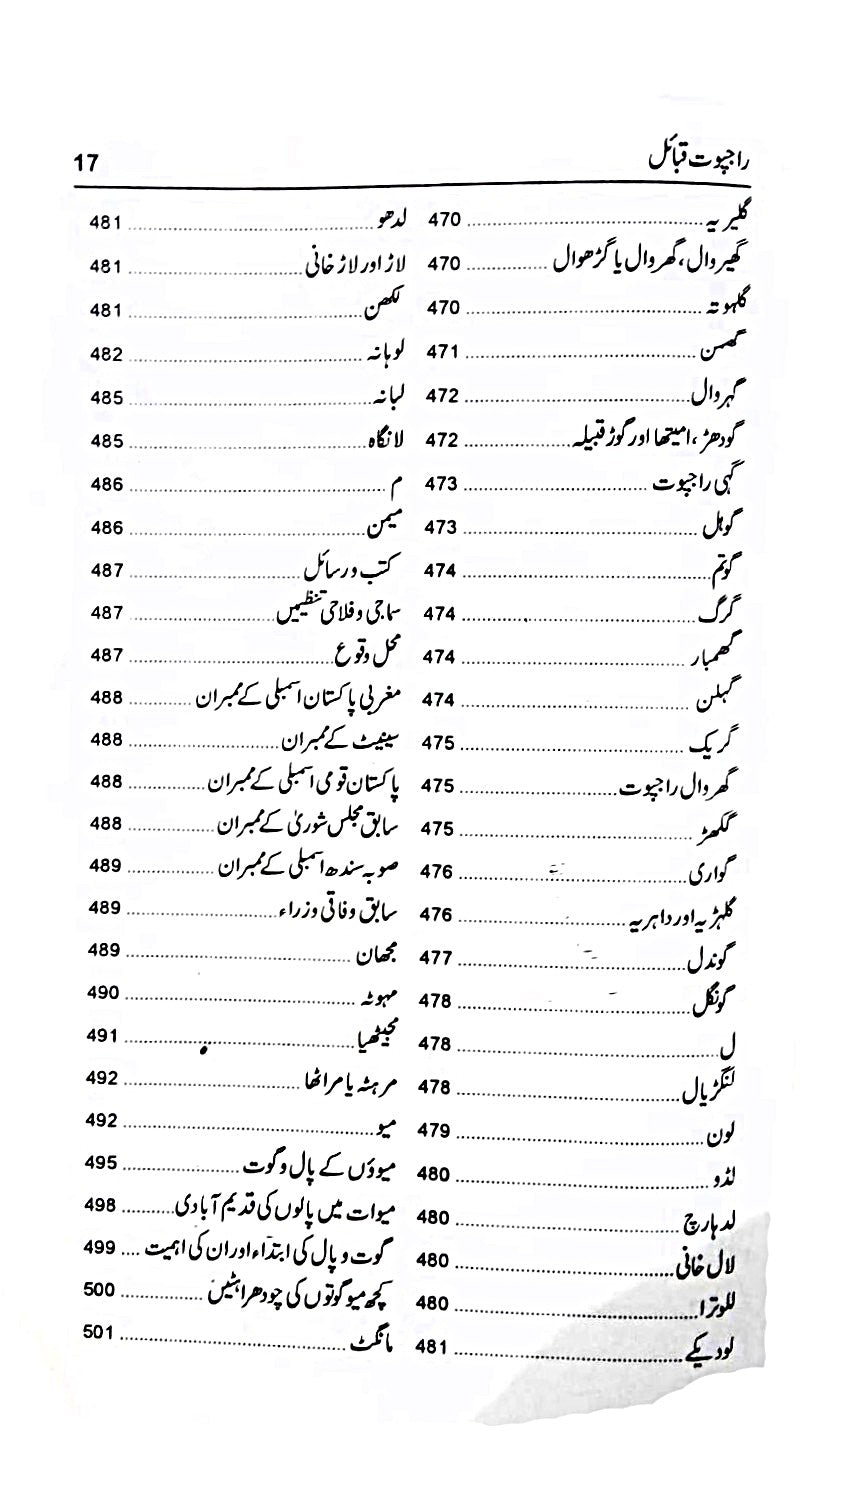 راجپوت قبائل 17
گلیریہ 470
گھیروال، گھروال یا گڑھوال 470
گلہوتہ 470
گھمن 471
گہروال 472
گودھڑ، امیتھا اور گوڑ قبیلہ 472
گہی راجپوت 473
گوہل 473
گوتم 474
گرگ 474
گھمبار 474
گہلن 474
گریک 475
گھروال راجپوت 475
گکھڑ 475
گواری 476
گلہڑیہ اور داہریہ 476
گوندل 477
گونگل 478
ل 478
لنگڑیال 478
لون 479
لڈو 480
لدہارچ 480
لال خانی 480
للوترا 480
لودیکے 481
لدھو 481
لاڑ اور لاڑ خانی 481
لکھن 481
لوہانہ 482
لبانہ 485
لانگاہ 485
م 486
میمن 486
کتب و رسائل 487
سماجی و فلاحی تنظیمیں 487
محل وقوع 487
مغربی پاکستان اسمبلی کے ممبران 488
سینیٹ کے ممبران 488
پاکستان قومی اسمبلی کے ممبران 488
سابق مجلس شوریٰ کے ممبران 488
صوبہ سندھ اسمبلی کے ممبران 489
سابق وفاقی وزراء 489
مجھان 489
مہوٹہ 490
مجیٹھیا 491
مرہٹہ یا مراٹھا 492
میو 492
میوؤں کے پال و گوت 495
میوات میں پالوں کی قدیم آبادی 498
گوت و پال کی ابتداء اور ان کی اہمیت 499
کچھ میو گوتوں کی چودھراہٹیں 500
مانگٹ 501